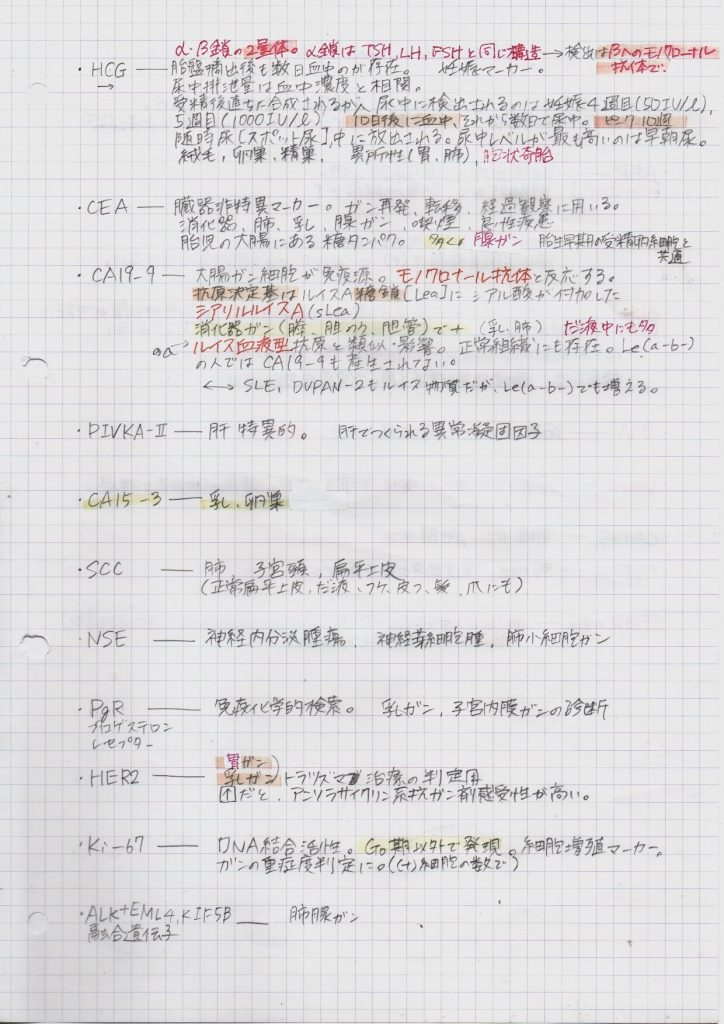 α・β鎖の2量体。α鎖は TSH, LH, FSH と同じ構造→検出はβへのモノクローナル抗体で.
・HCG ― 胎盤摘出後も数日血中のが存在。 妊娠マーカー。
尿中排泄量は血中濃度と相関。
受精後直ちに合成されるが、尿中に検出されるのは妊娠4週目(50IU/ℓ),
5週目(1000IU/ℓ) 10日後に血中、それから数日で尿中。ピーク10週
随時尿[スポット尿]中に放出される。尿中レベルが最も高いのは早朝尿。
絨毛, 卵巣, 精巣, 異所性(胃,肺), 胞状奇胎
・CEA ― 臓器非特異マーカー。ガン再発、転移、経過観察に用いる。
消化器、肺、乳、腺ガン、喫煙、急性疾患
胎児の大腸にある糖タンパク。 多くの腺ガン 胎生早期の受精卵細胞と共通
・CA19-9 ― 大腸ガン細胞が免疫源。モノクロナール抗体と反応する。
抗原決定基はルイスA糖鎖[Lea]にシアル酸が付加した
シアリルルイスA(sLea)
消化器ガン(膵、胆のう、胆管)で+ (乳,肺) だ液中にも多
→ルイス血液型抗原と類似・影響。正常組織にも存在。Le(a-b-)
の人ではCA19-9も産生されない。
←→ SLE, DUPAN-2もルイス物質だが、Le(a-b-)でも増える。
・PIVKA-Ⅱ ― 肝特異的。 肝でつくられる異常凝固因子
・CA15-3 ― 乳、卵巣
・SCC ― 肺、子宮頸、扁平上皮
(正常扁平上皮,だ液、フケ、皮フ、髪、爪にも)
・NSE ― 神経内分泌腫瘍、神経芽細胞腫、肺小細胞ガン
・PgR ― 免疫化学的検索。 乳ガン,子宮内膜ガンの診断
プロゲステロン
レセプター
胃ガン
・HER2 ― 乳ガン トラツズマブ治療の判定用
↑だと、アンソラサイクリン系抗ガン剤感受性が高い。
・Ki-67 ― DNA結合活性。G₀期以外で発現。細胞増殖マーカー。
ガンの重症度判定に。((+)細胞の数で)
・ALK+EML4, KIF5B ― 肺腺ガン
融合遺伝子